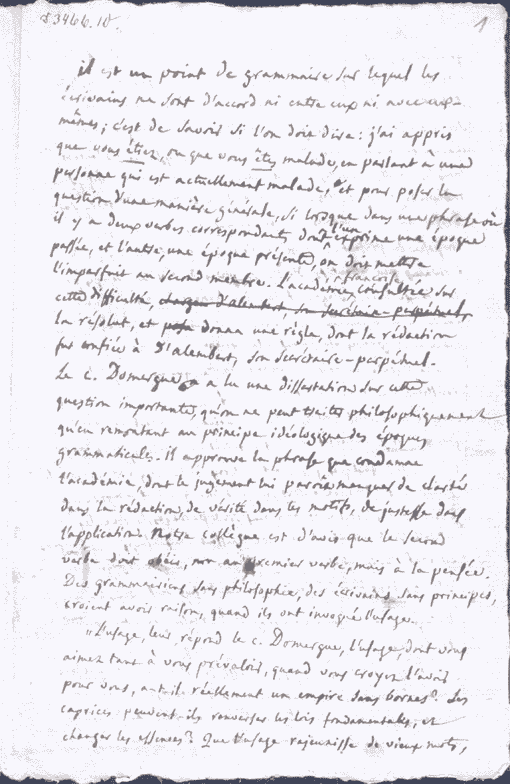 §3466.10. 1
il est un point de grammaire sur lequel les
écrivains ne sont d'accord ni entre eux ni avec eux-
mêmes; c'est de savoir si l'on doit dire: j'ai appris
que vous étiez, ou que vous êtes malade, en parlant à une
personne qui est actuellement malade, et pour poser la
question d'une manière générale, si lorsque dans une phrase où
il y a deux verbes correspondants dont l'un exprime une époque
passée, et l'autre, une époque présente, on doit mettre
l'imparfait au second membre. L'académie française consultée sur
cette difficulté, chargea d'alembert, son secrétaire-perpétuel,
la résolut, et donna une règle, dont la rédaction
fut confiée à D'alembert, son secrétaire-perpétuel.
Le c. Domergue a lu une dissertation sur cette
question importante, qu'on ne peut traiter philosophiquement
qu'en remontant au principe idéologique des époques
grammaticales. il approuve la phrase que condamne
l'académie, dont le jugement lui paroît manquer de clarté
dans la rédaction, de vérité dans les motifs, de justesse dans
l'application. Notre collègue est d'avis que le second
verbe doit obéir, non au premier verbe, mais à la pensée.
Des grammairiens sans philosophie, des écrivains sans principes,
croient avoir raison, quand ils ont invoqué l'usage.
"L'usage, leur répond le c. Domergue, l'usage, dont vous
aimez tant à vous prévaloir, quand vous croyez l'avoir
pour vous, a-t-il réellement un empire sans bornes? Ses
caprices peuvent-ils renverser les lois fondamentales, et
changer les essences? Que l'usage rajeunisse de vieux mots,